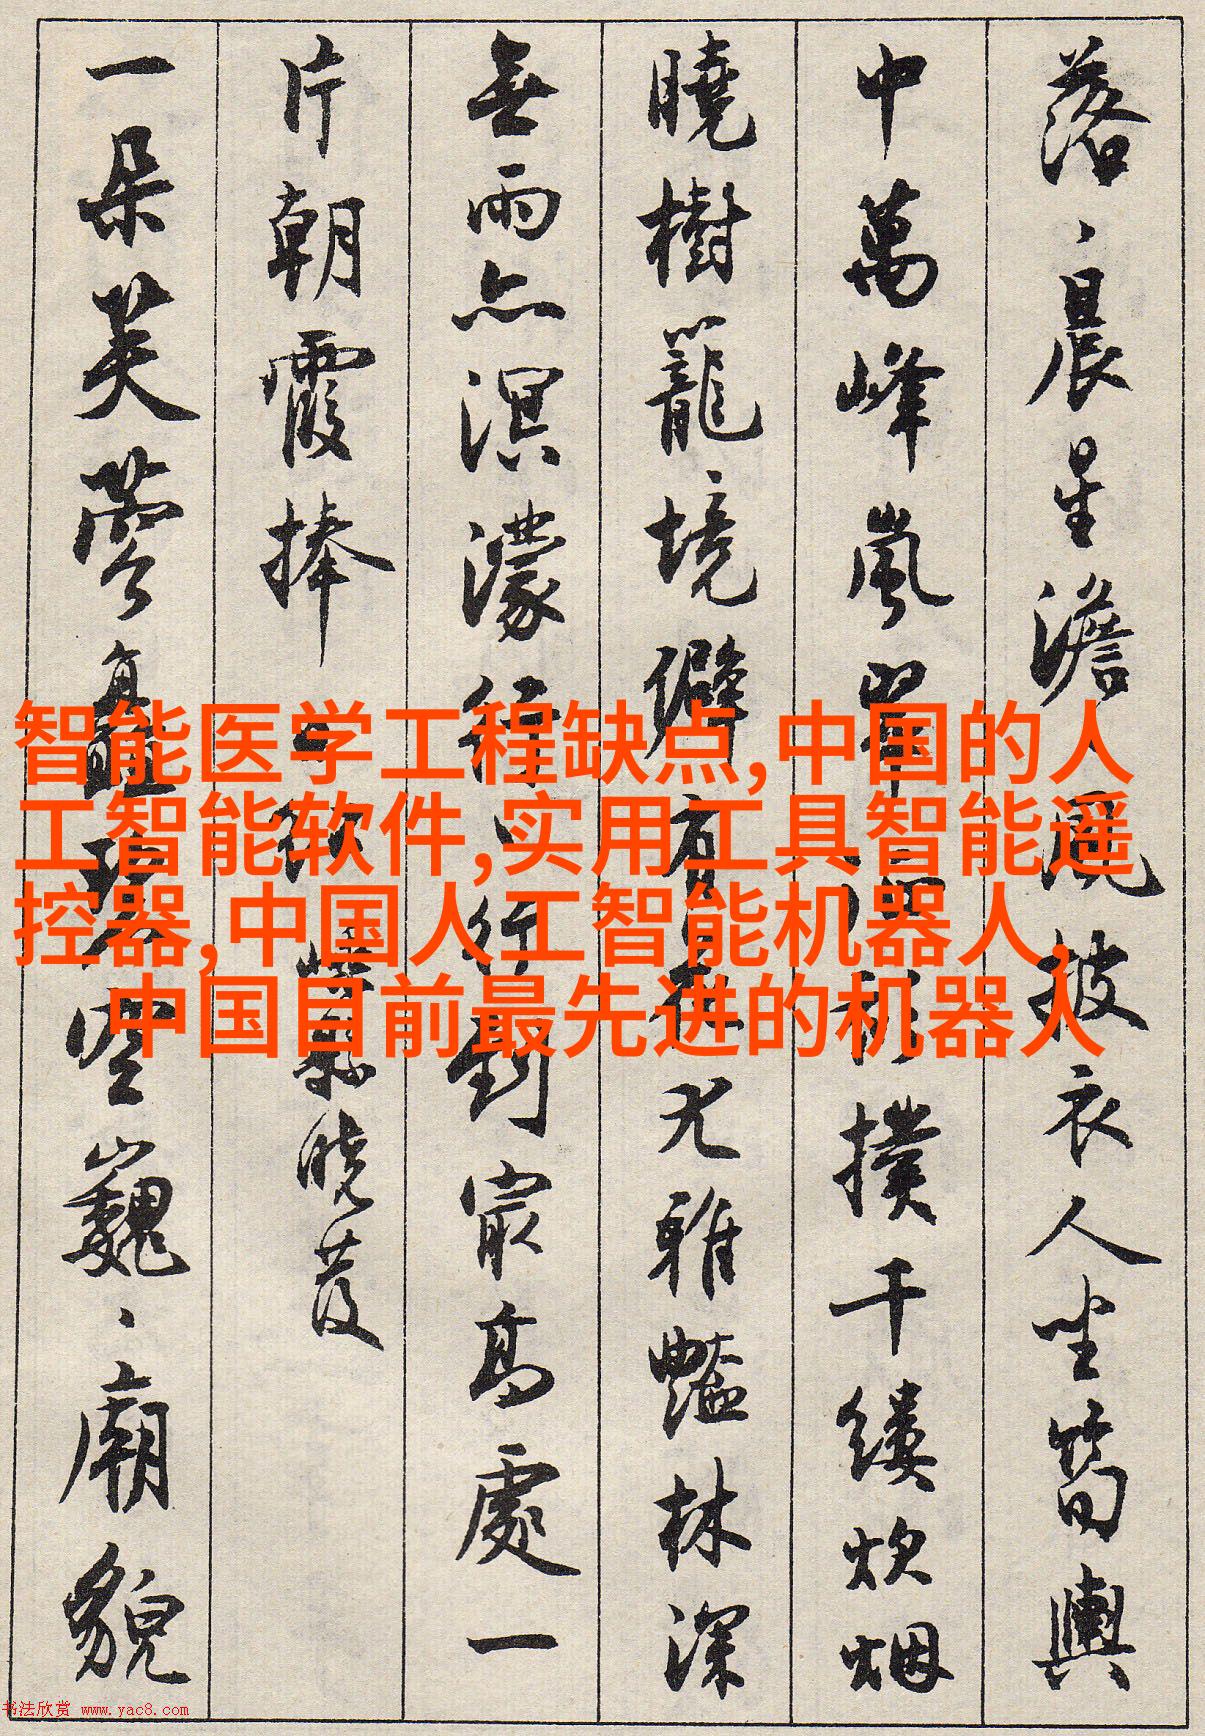 落、晨星澹、風披衣人坐筍輿
中萬峰嵐翠衫撲千縷炊烟
曉樹籠、境僻有花尤雅豔林深
無雨亦溟濛行、行到最高處一
片朝霞捧
曉發
一朵芙蓉矗碧空巍、廟貌
智能医学工程缺点,中国的人
工智能软件,实用工具智能遥
控器,中国人工智能机器人,
中国目前最先进的机器人
书法欣赏 www.yac8.com